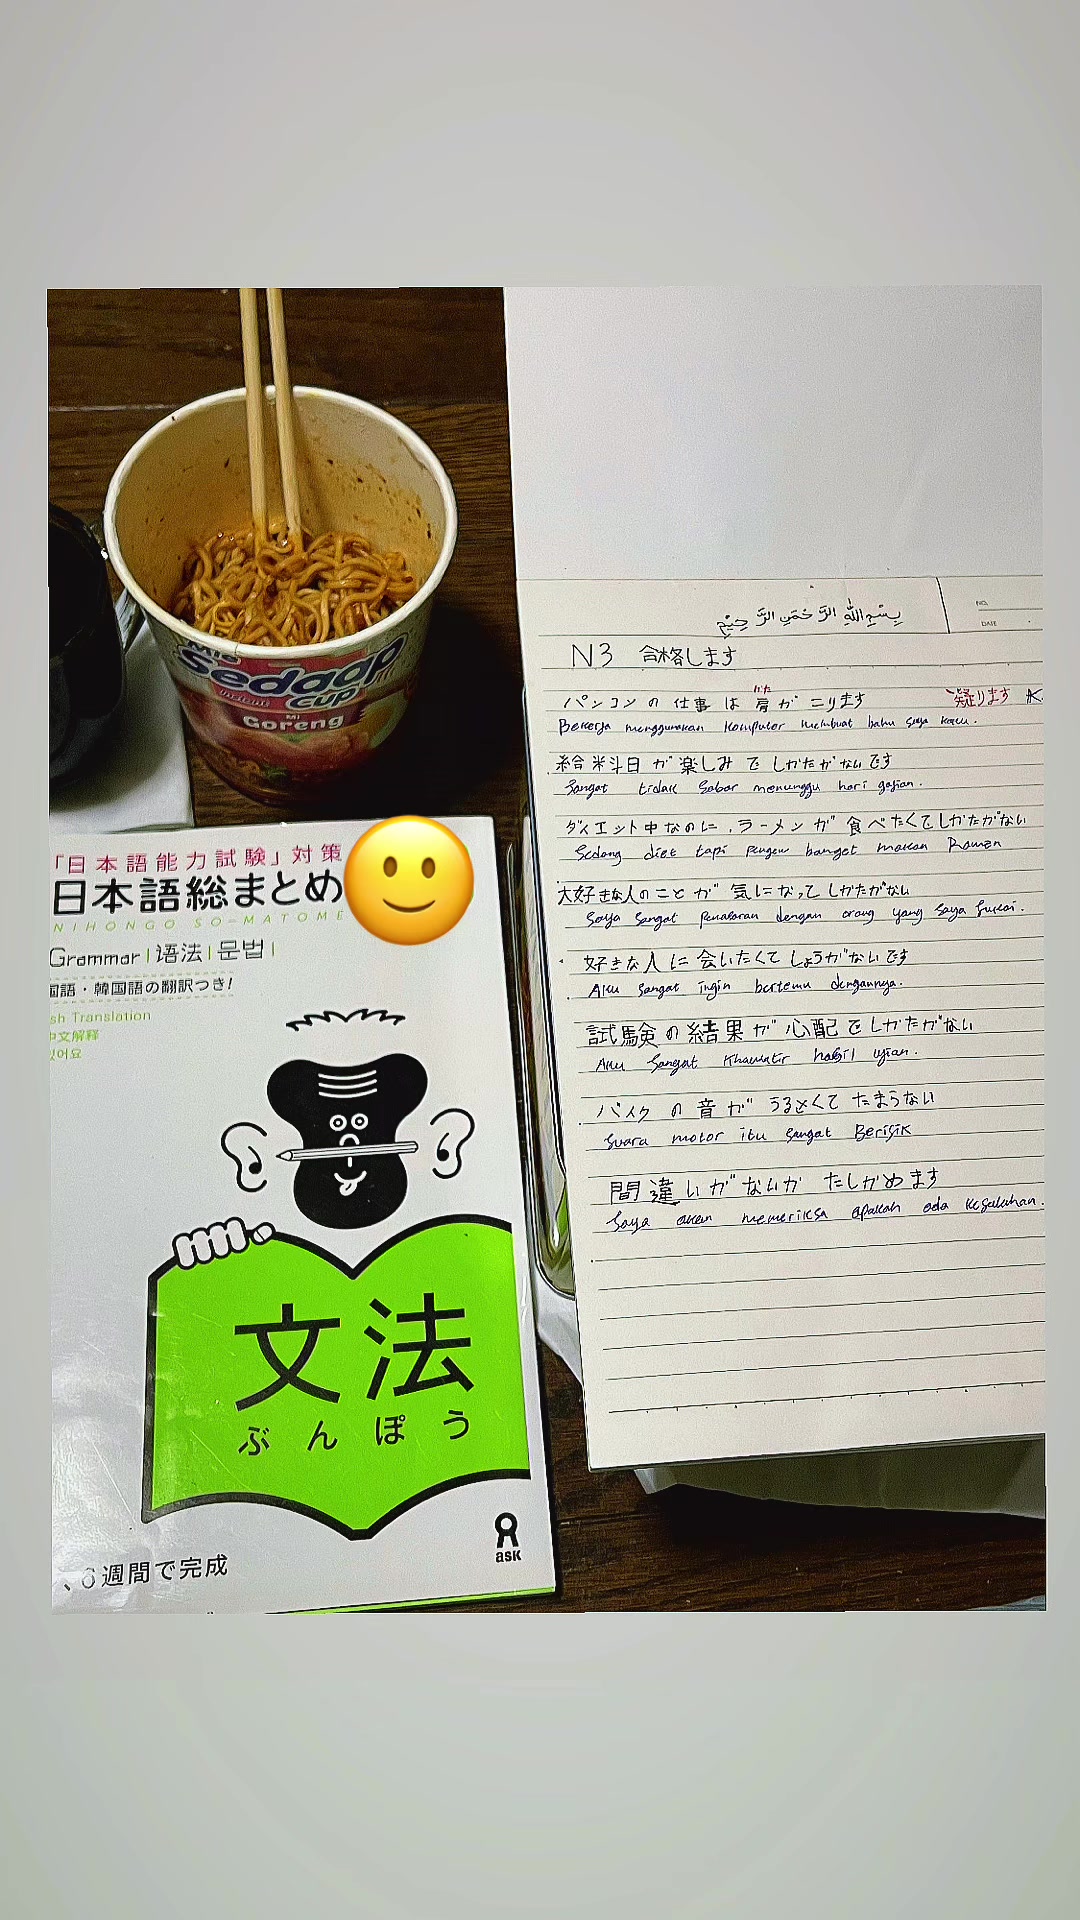 Mie
Sedaap
instant CUP
Mi
Goreng
「日本語能力試験」対策
日本語総まとめ
NIHONGO SO-MATOME
Grammar | 语法 | 문법 |
国語・韓国語の翻訳つき!
sh Translation
中文解释
있어요
文法
ぶんぽう
ask
、6週間で完成
بسم الله الرحمن الرحيم
NO.
DATE
N3 合格します
かた
パンコンの仕事は肩がこります 凝ります
Bekerja menggunakan komputer membuat bahu saya kaku.
給料日が楽しみでしかたがないです
Sangat tidak sabar menunggu hari gajian.
ダイエット中なのに、ラーメンが食べたくてしかたがない
Sedang diet tapi pengen banget makan Ramen
大好きな人のことが気になってしかたがない
Saya sangat penasaran dengan orang yang saya sukai.
好きな人に会いたくてしょうがないです
Aku sangat ingin bertemu dengannya.
試験の結果が心配でしかたがない
Aku sangat khawatir hasil ujian.
バイクの音がうるさくてたまらない
Suara motor itu sangat Berisik
間違いがないか たしかめます
Saya akan memeriksa apakah ada kesalahan.